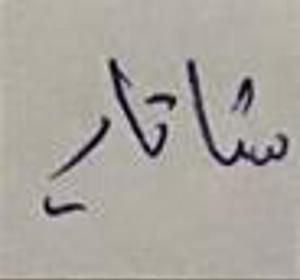 شاتارِ